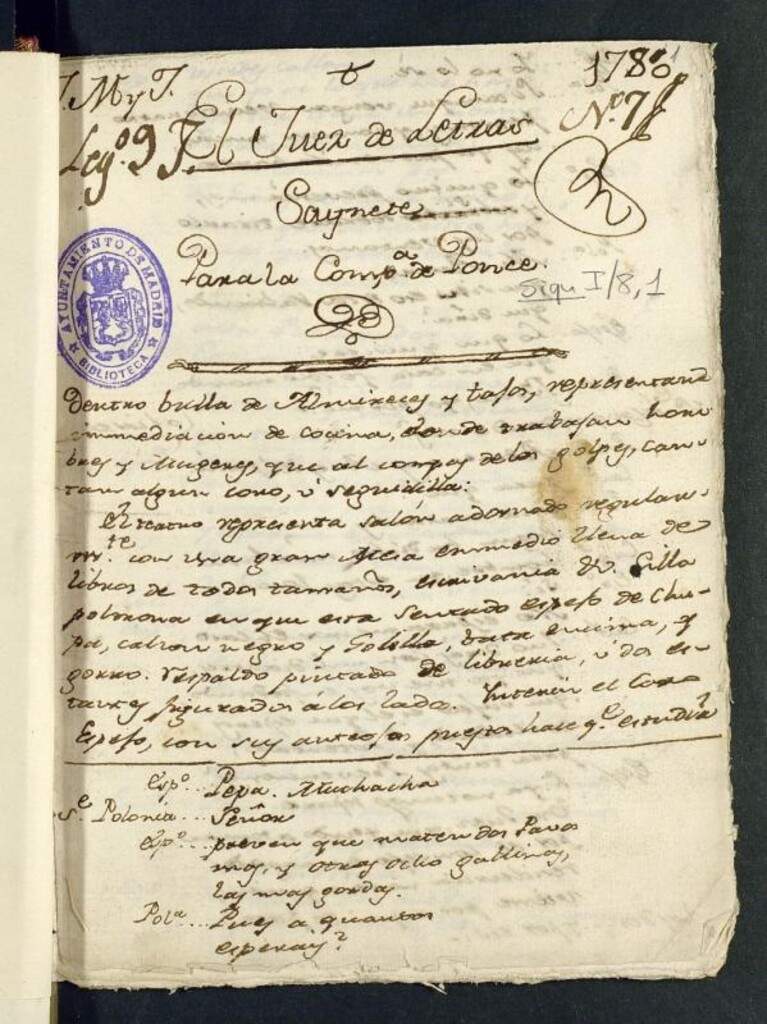 J. M y J.
1780
Leg.º 9
El Juez de Letras
N.º 7
Saynete
Para la Comp.ª de Ponce.
Sigu I/8,1
AYUNTAMIENTO DE MADRID
BIBLIOTECA
Dentro bulla de Almireces y tajos, representand
inmediacion de cocina, donde trabajan hom-
bres y Mugeres, que al compas de los golpes, can-
tan algun coro, ò seguidilla:
El teatro representa salon adornado regular-
m.te con una gran Mesa enmedio llena de
libros de todos tamaños, escrivania &. Silla
poltrona en que esta sentado espejo de Chu-
pa, calzon negro y Golilla, bata encima, y
gorro. respaldo pintado de libreria, ù dos es-
tantes figurados à los lados. Interin el Coro
Espejo, con sus anteojos puestos hace q.e estudia
Esp.º... Pepa. Muchacha
S.e Polonia... Señor
Esp.º... preven que maten dos Pavos
mas, y otras ocho gallinas,
las mas gordas.
Pol.ª... Pues a quantos
esperais?